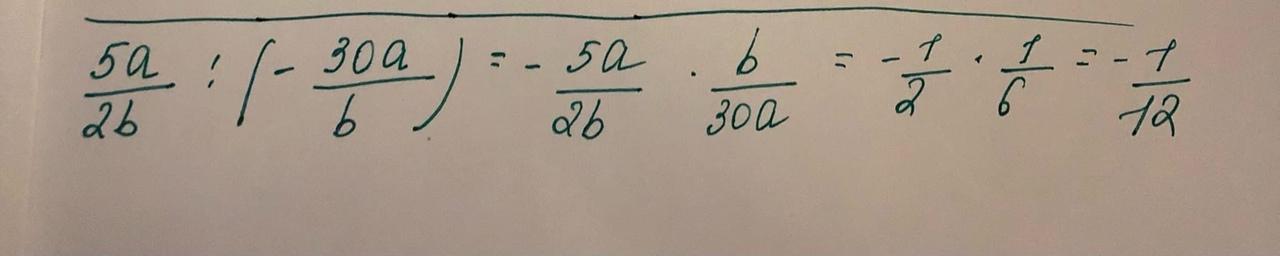 5a/2b : (- 30a/b) = - 5a/2b · b/30a = - 1/2 · 1/6 = - 1/12